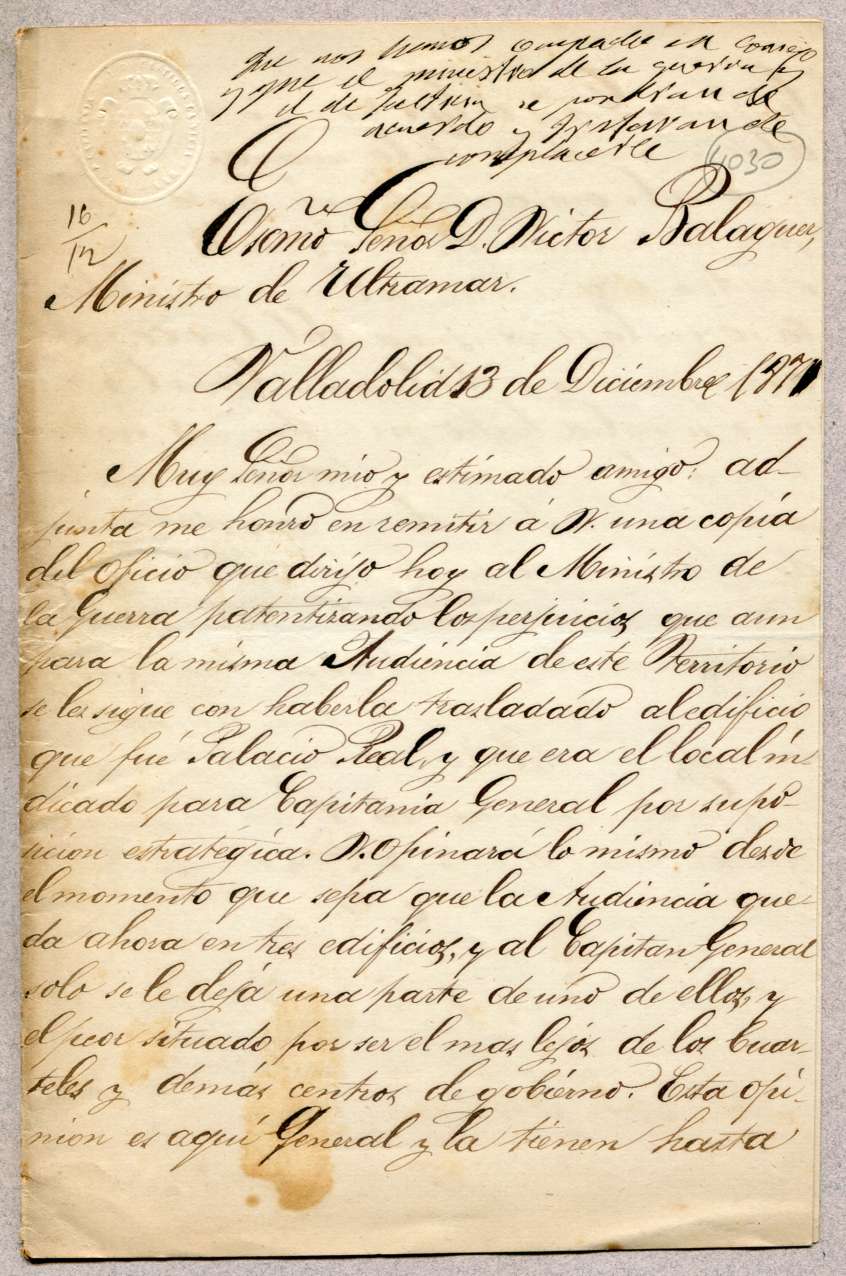 que nos hemos ocupado en consejo
y que el ministro de la guerra y
el de Justicia se pondran de
acuerdo y trataran de
complacerle
4030
16
/12
Esomo Señor D. Victor Balaguer,
Ministro de Ultramar.
Valladolid 13 de Diciembre 1871
Muy Señor mio y estimado amigo: ad-
junta me honro en remitir á V. una copia
del oficio que dirijo hoy al Ministro de
la Guerra patentizando los perjuicios que aun
para la misma Audiencia de este Territorio
se les sigue con haberla trasladado al edificio
que fué Palacio Real, y que era el local in-
dicado para Capitania General por su po-
sicion estratégica. V. opinará lo mismo desde
el momento que sepa que la Audiencia que-
da ahora en tres edificios, y al Capitan General
solo se le deja una parte de uno de ellos, y
el peor situado por ser el mas lejos de los Cuar-
teles y demás centros de gobierno. Esta opi-
nion es aquí General y la tienen hasta